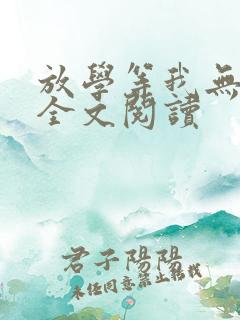 放學等我無
全文閱讀
君子陽陽
未任同意禁止轉載